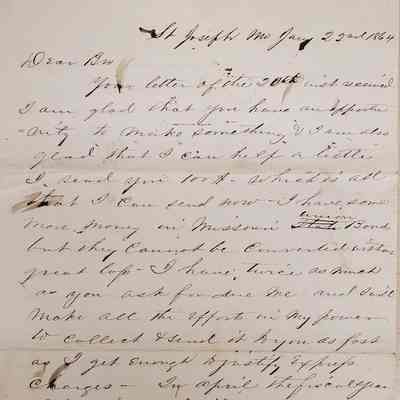 St Joseph Mo Jany 22nd 1864
Dear Bro
Your letter of the 20th inst received
I am glad that you have an opportu
-nity to make something & I am also
glad that I can help a little
I send you 100$ - which is all
that I can send now - I have some
more money in Missouri Union Bonds
but they cannot be converted without
great loss - I have twice as much
as you ask for due me and will
make all the efforts in my power
to collect & send it to you as fast
as I get enough to justify Express
charges - In april the fiscal year